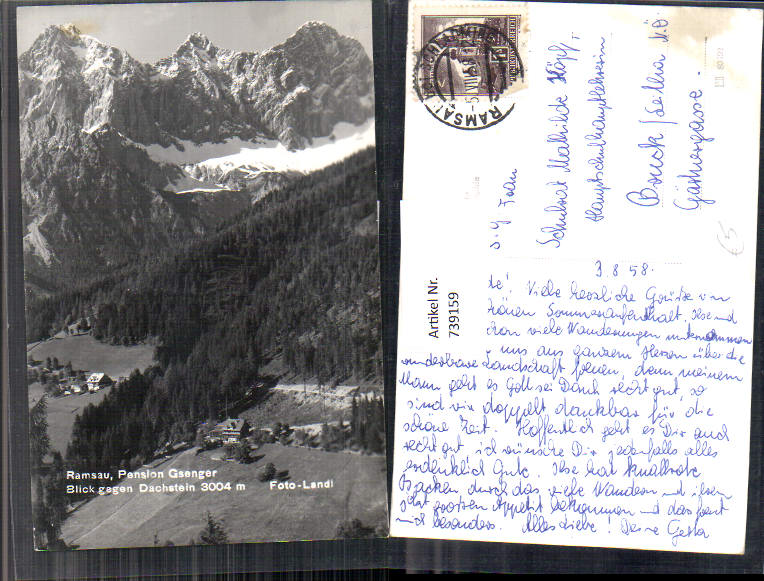 Ramsau, Pension Gsenger
Blick gegen Dachstein 3004 m Foto-Landl
RAMSAU
REPUBLIK ÖSTERREICH
S. g. Frau
Schulrat Mathilde
Hauptschulhauptlehrerin
Bruck / Leitha N.Ö.
Gärtnergasse
€5
Artikel Nr.
739159
3.8.58.
te! Viele herzliche Grüße von
Sommeraufenthalt. Ilse und
viele Wanderungen unternommen
uns aus ganzem Herzen über die
wunderbare Landschaft freuen, denn meinem
Mann geht es Gott sei Dank recht gut, so
sind wir doppelt dankbar für die
schöne Zeit. Hoffentlich geht es Dir auch
recht gut, ich wünsche Dir jedenfalls alles
erdenklich Gute. Ilse hat knallrote
Backen durch das viele Wandern und einen
großen Appetit bekommen und das freut
mich besonders. Alles Liebe! Deine